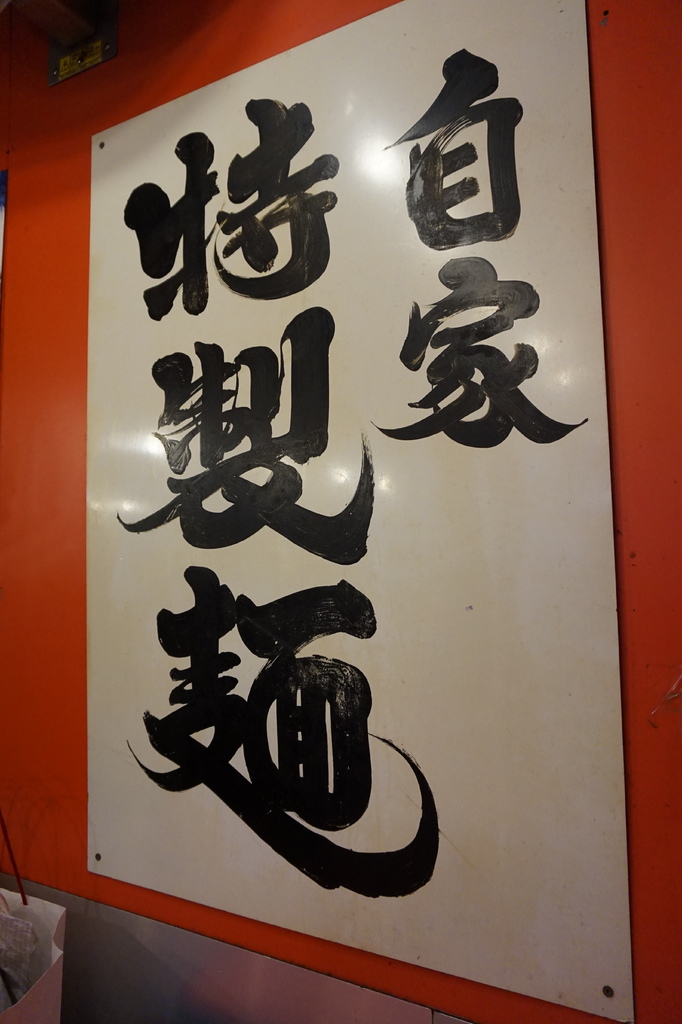 自家
特製麺